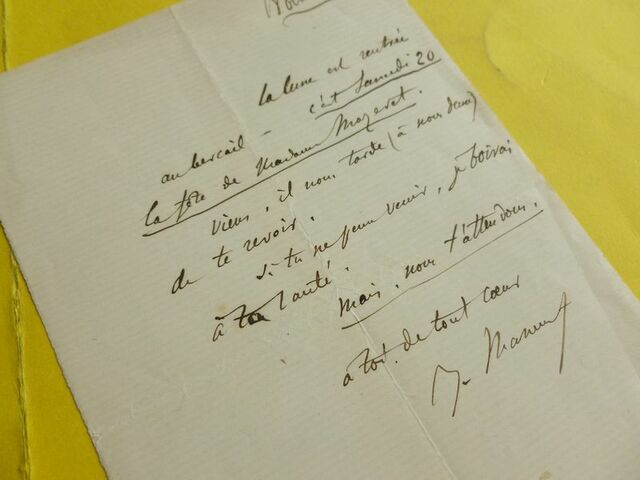 la lune est rentrée
au bercail - c'est Samedi 20
la fête de Madame Mazeret.
Viens, il nous tarde (à nous deux)
de te revoir.
Si tu ne peux venir, je boirai
à ta santé.
Mais, nous t'attendons.
à toi. de tout cœur